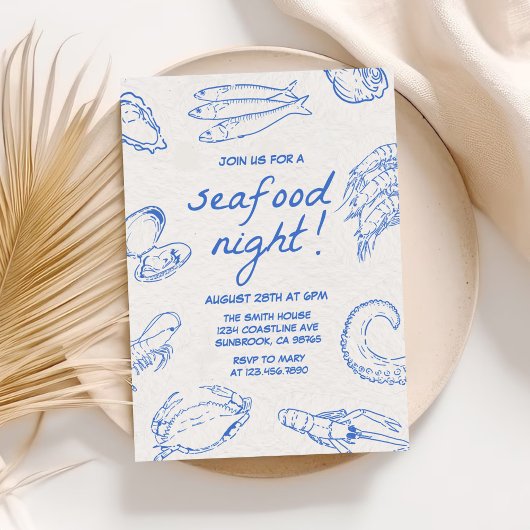 JOIN US FOR A
seafood
night!
AUGUST 28TH AT 6PM
THE SMITH HOUSE
1234 COASTLINE AVE
SUNBROOK, CA 98765
RSVP TO MARY
AT 123.456.7890